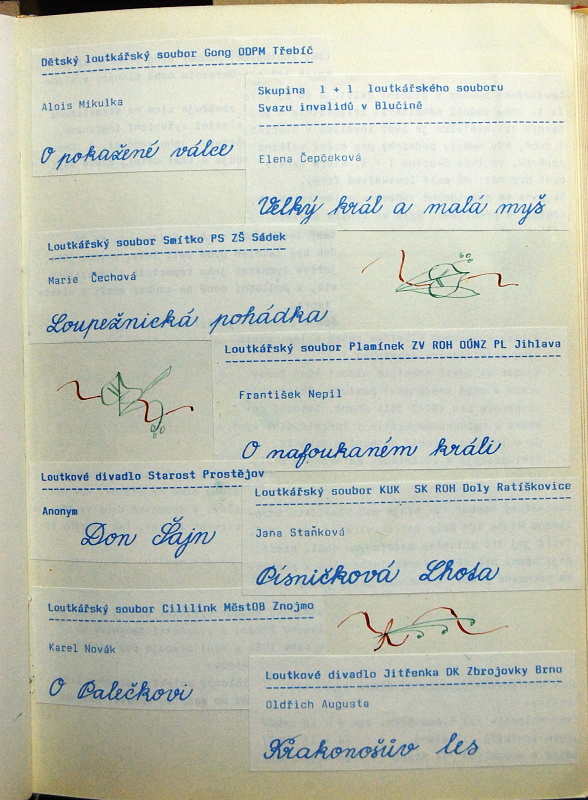 Dětský loutkářský soubor Gong ODPM Třebíč
Alois Mikulka
O pokažené válce
Skupina 1 + 1 loutkářského souboru
Svazu invalidů v Blučině
Elena Čepčeková
Velký král a malá myš
Loutkářský soubor Smítko PS ZŠ Sádek
Marie Čechová
Loupežnická pohádka
Loutkářský soubor Plamínek ZV ROH OÚNZ PL Jihlava
František Nepil
O nafoukaném králi
Loutkové divadlo Starost Prostějov
Anonym
Don Šajn
Loutkářský soubor KUK SK ROH Doly Ratíškovice
Jana Staňková
Písničková Lhota
Loutkářský soubor Cililink MěstOB Znojmo
Karel Novák
O Palečkovi
Loutkové divadlo Jitřenka OK Zbrojovky Brno
Oldřich Augusta
Krakonošův les